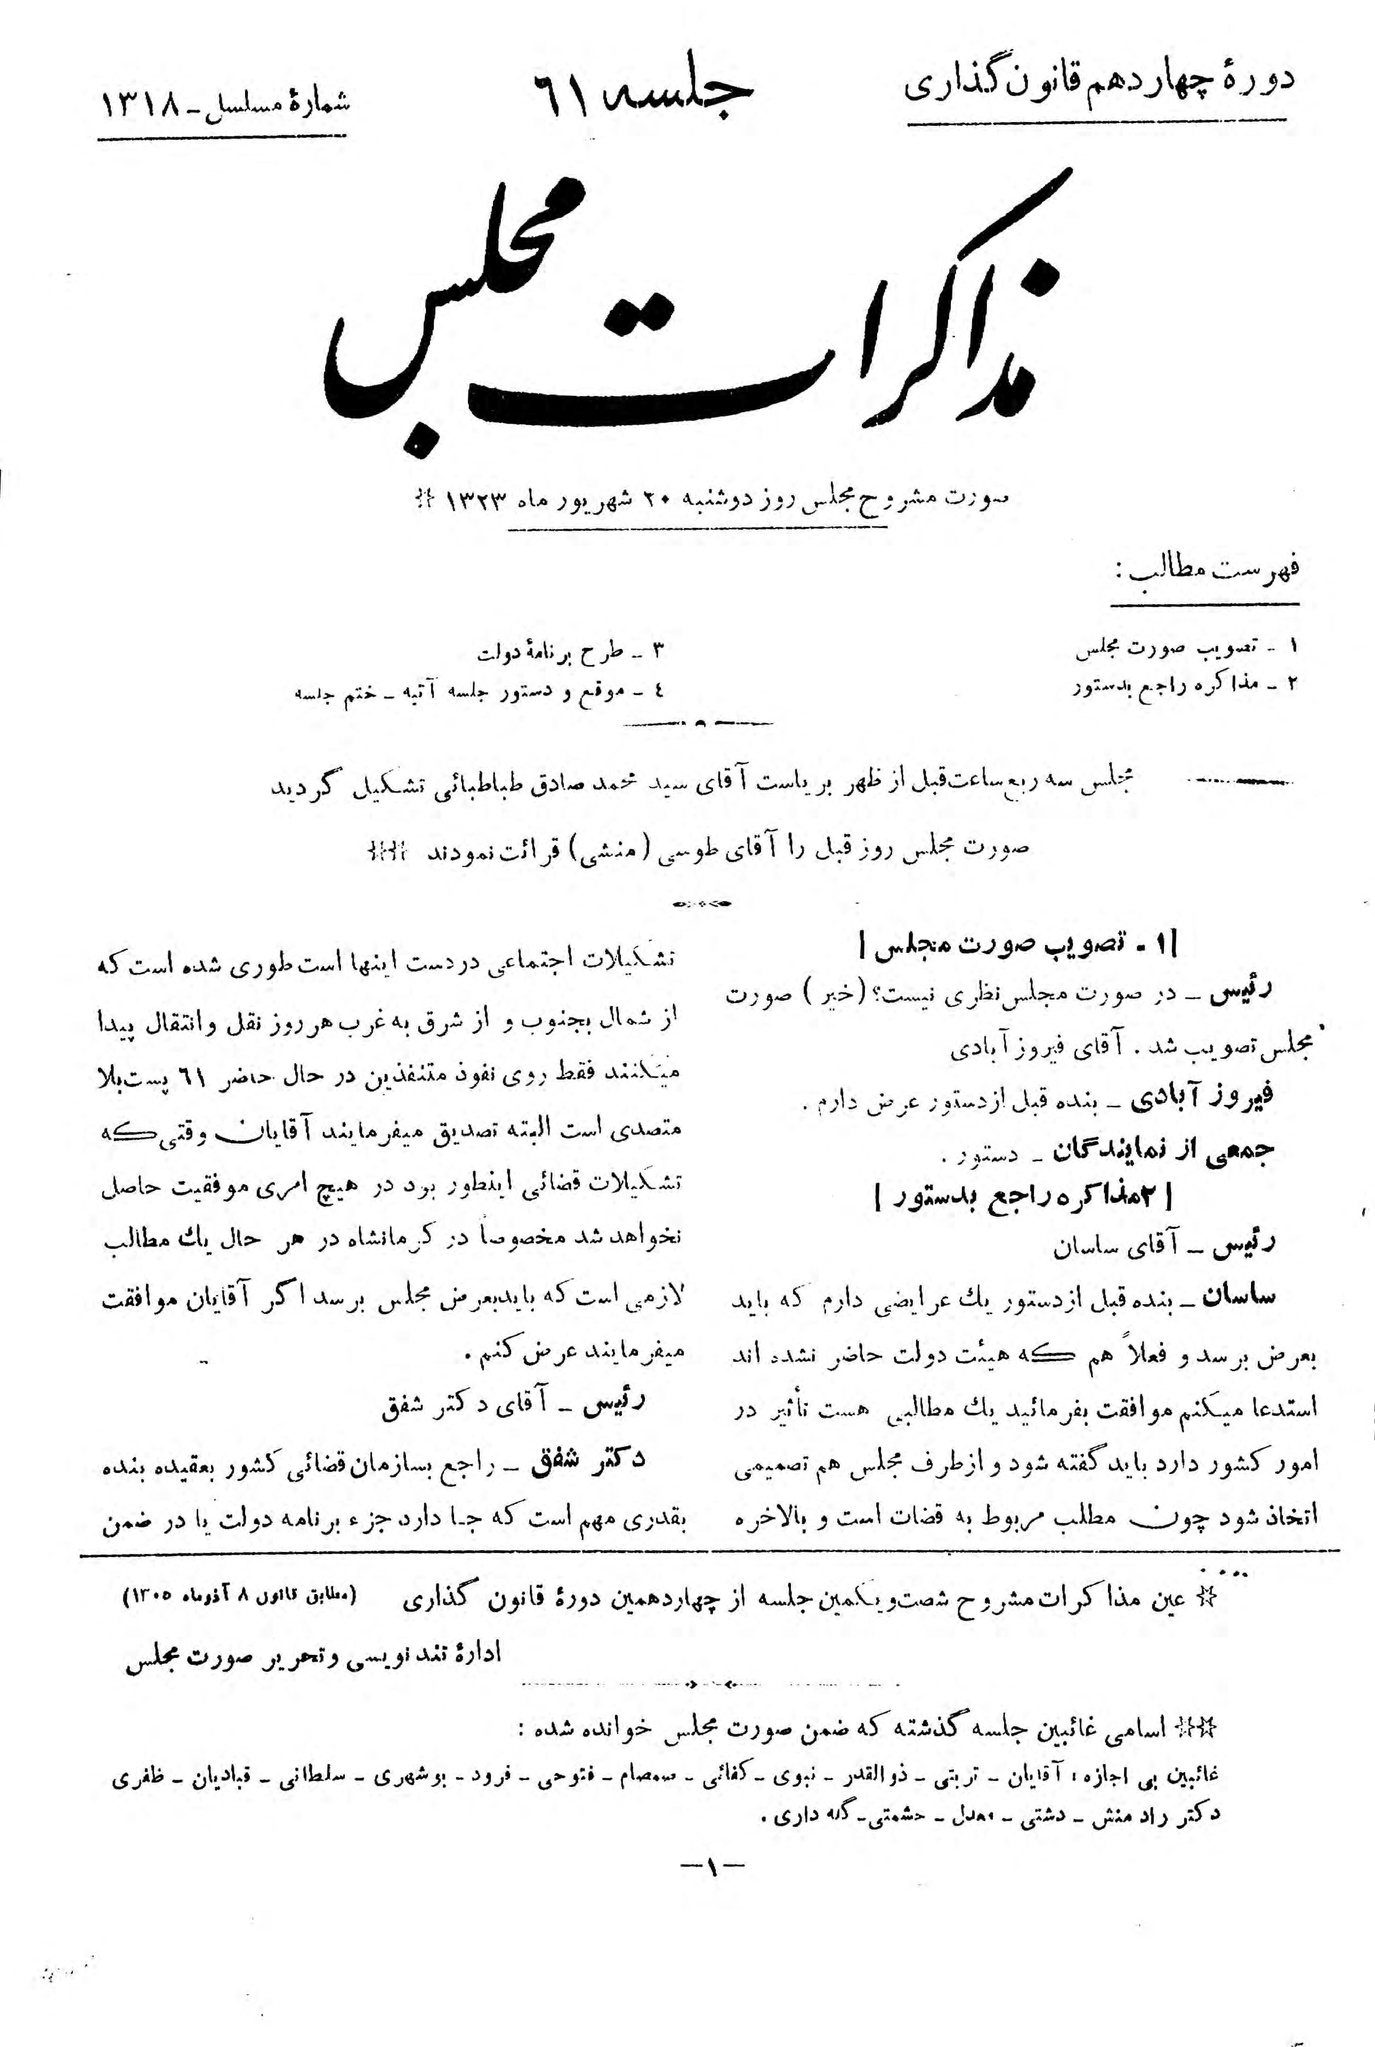 دورهٔ چهاردهم قانون‌گذاری
جلسه ٦١
شمارهٔ مسلسل ـ ١٣١٨
مذاکرات مجلس
صورت مشروح مجلس روز دوشنبه ٢٠ شهریور ماه ١٣٢٣ *
فهرست مطالب :
١ ـ تصویب صورت مجلس
٢ ـ مذاکره راجع بدستور
٣ ـ طرح برنامهٔ دولت
٤ ـ موقع و دستور جلسه آتیه ـ ختم جلسه
مجلس سه ربع ساعت قبل از ظهر بریاست آقای سید محمد صادق طباطبائی تشکیل گردید
صورت مجلس روز قبل را آقای طوسی (منشی) قرائت نمودند **
[١ ـ تصویب صورت مجلس]
رئیس ـ در صورت مجلس نظری نیست؟ (خیر) صورت
مجلس تصویب شد . آقای فیروزآبادی
فیروزآبادی ـ بنده قبل از دستور عرض دارم .
جمعی از نمایندگان ـ دستور .
[٢ مذاکره راجع بدستور]
رئیس ـ آقای ساسان
ساسان ـ بنده قبل از دستور یك عرایضی دارم که باید
بعرض برسد و فعلاً هم که هیئت دولت حاضر نشده اند
استدعا میکنم موافقت بفرمائید یك مطالبی هست تأثیر در
امور کشور دارد باید گفته شود و از طرف مجلس هم تصمیمی
اتخاذ شود چون مطلب مربوط به قضات است و بالاخره
تشکیلات اجتماعی در دست اینها است طوری شده است که
از شمال بجنوب و از شرق به غرب هر روز نقل و انتقال پیدا
میکنند فقط روی نفوذ متنفذین در حال حاضر ٦١ پست بلا
متصدی است البته تصدیق میفرمایند آقایان وقتی که
تشکیلات قضائی اینطور بود در هیچ امری موفقیت حاصل
نخواهد شد مخصوصاً در کرمانشاه در هر حال یك مطالب
لازمی است که باید بعرض مجلس برسد اگر آقایان موافقت
میفرمایند عرض کنم .
رئیس ـ آقای دکتر شفق
دکتر شفق ـ راجع بسازمان قضائی کشور بعقیده بنده
بقدری مهم است که جا دارد جزء برنامه دولت یا در ضمن
* عین مذاکرات مشروح شصت و یکمین جلسه از چهاردهمین دورهٔ قانون گذاری (مطابق قانون ٨ آذرماه ١٣٠٥)
ادارهٔ تند نویسی و تحریر صورت مجلس
** اسامی غائبین جلسه گذشته که ضمن صورت مجلس خوانده شده :
غائبین بی اجازه : آقایان ـ تربتی ـ ذوالقدر ـ نبوی ـ کفائی ـ صمصام ـ فتوحی ـ فرود ـ بوشهری ـ سلطانی ـ قبادیان ـ ظفری
دکتر رادمنش ـ دشتی ـ معدل ـ حشمتی ـ گله داری .
ـ١ـ